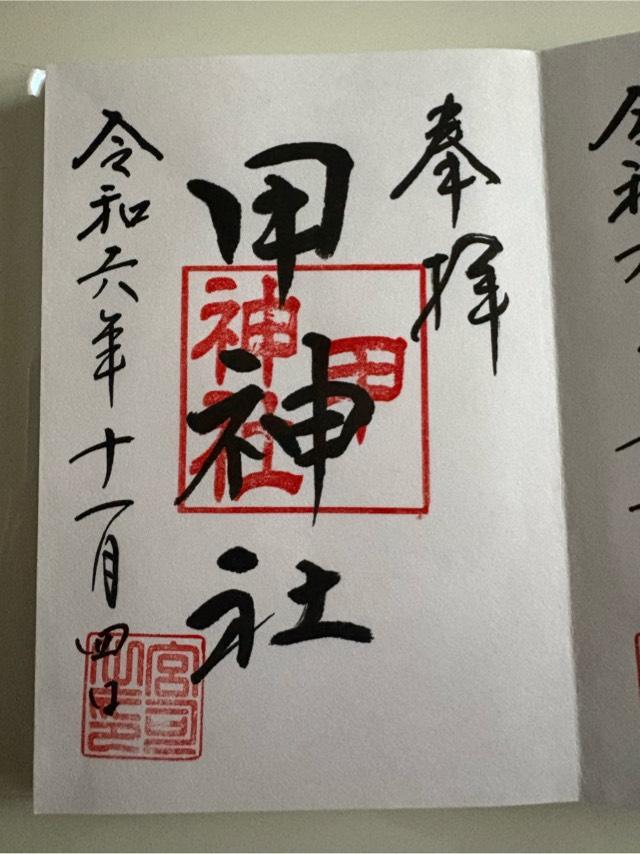 奉拝
甲神社
甲
神社
令和六年十一月四日
宮司
之印
令和六